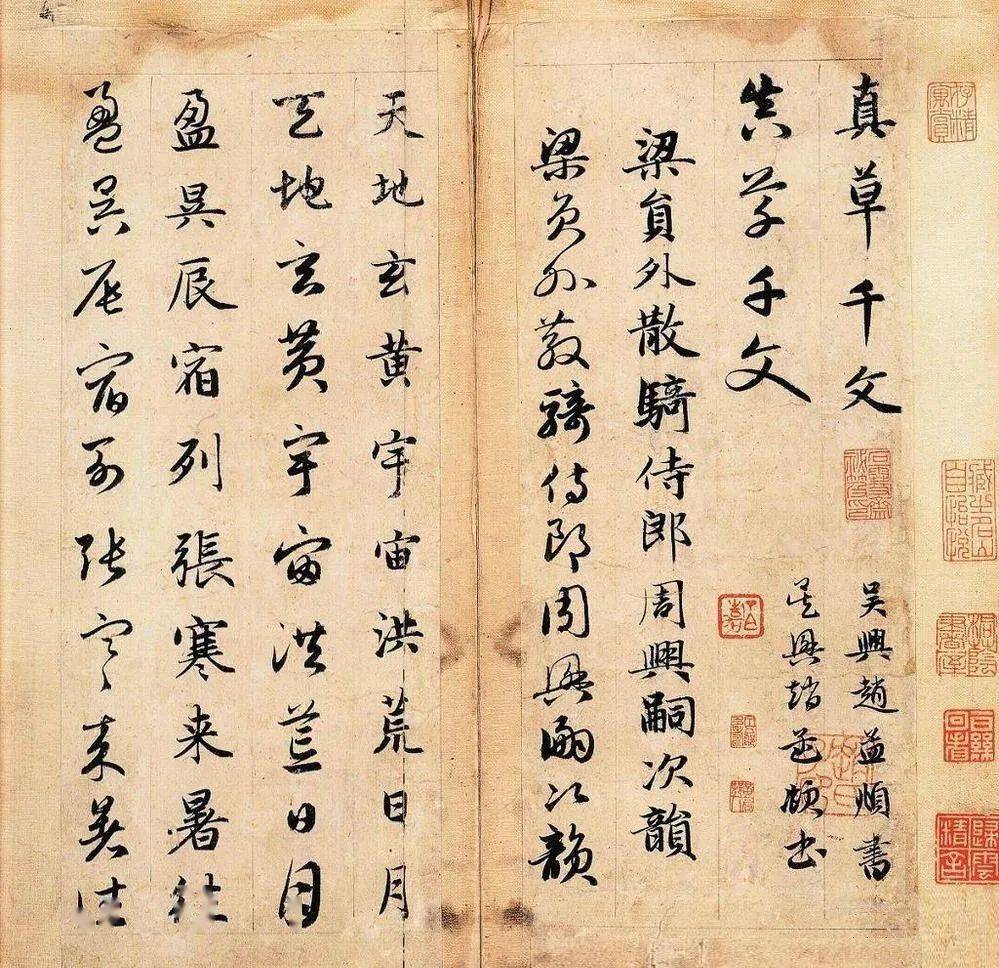 真草千文
真草千文
吳興趙孟頫書
吳興趙孟頫書
梁員外散騎侍郎周興嗣次韻
梁員外散騎侍郎周興嗣次韻
天地玄黃宇宙洪荒日月
天地玄黃宇宙洪荒日月
盈昃辰宿列張寒来暑往
盈昃辰宿列張寒来暑往